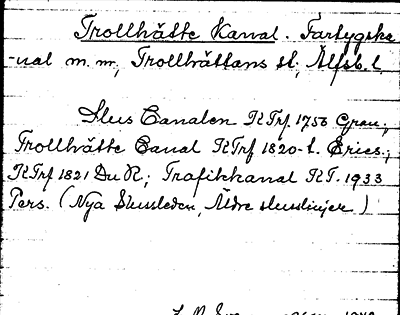 Trollhätte Kanal. Fartygska-
-nal m. m., Trollhättans sl; Älfsb. l.
Slus Canalen RTrf. 1756 Gran.;
Trollhätte Canal RTrf 1820-t. Erics.;
RTrf 1821 Du R; Trafikkanal RT. 1933
Pers. (Nya Slussleden, Äldre slusslinjer)